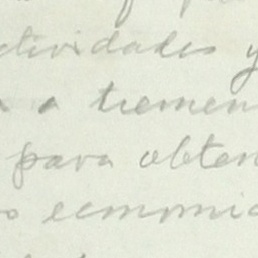 ctividades y
a tremen
para obten
o economic